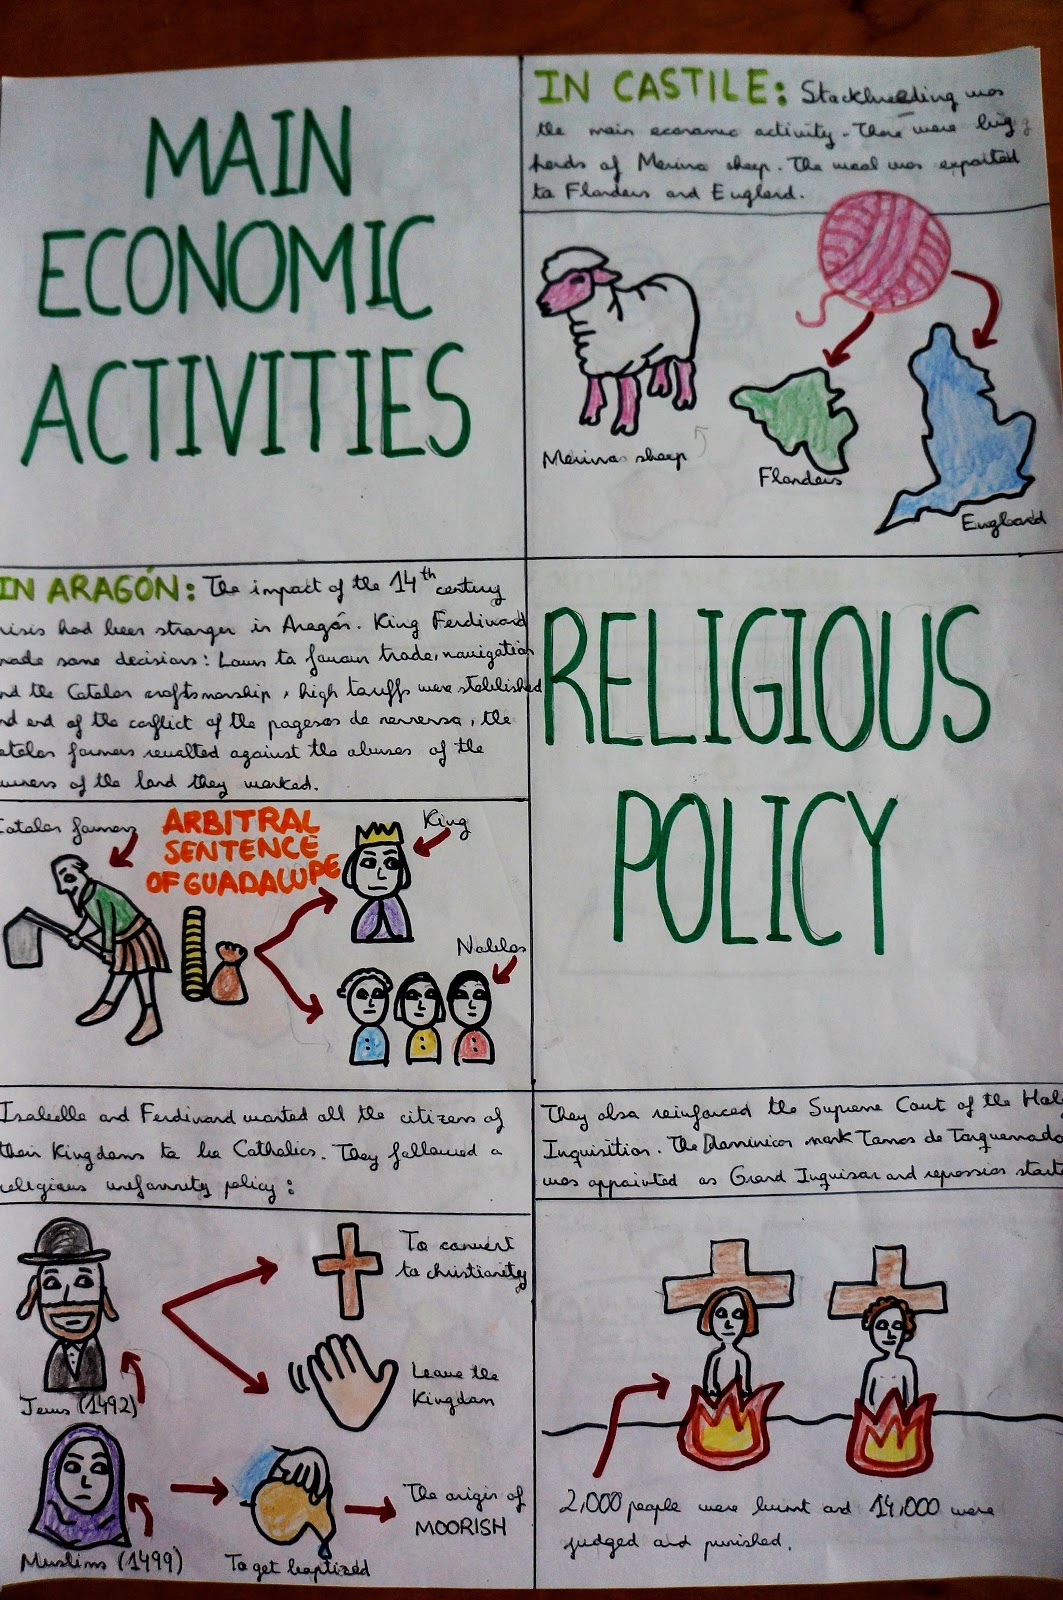 MAIN
ECONOMIC
ACTIVITIES
IN CASTILE: Stockbreeding was
the main economic activity. There were big
herds of Merina sheep. The wool was exported
to Flanders and England.
Merina sheep
Flanders
England
IN ARAGÓN: The impact of the 14th century
risis had been stronger in Aragón. King Ferdinand
made some decisions: Laws to favour trade, navigation
nd the Catalan craftsmanship, high tariffs were stablished
nd end of the conflict of the pagesos de remensa, the
atalan farmers revolted against the abuses of the
owners of the land they worked.
Catalan farmers
ARBITRAL
SENTENCE
OF GUADALUPE
King
Nobles
RELIGIOUS
POLICY
Isabelle and Ferdinand wanted all the citizens of
their Kingdoms to be Catholics. They followed a
religious uniformity policy:
Jews (1492)
To convert
to christianity
Leave the
Kingdom
Muslims (1499)
To get baptized
The origin of
MOORISH
They also reinforced the Supreme Court of the Holy
Inquisition. The Dominican monk Tomas de Torquemado
was appointed as Grand Inquisor and repression starte
2,000 people were burnt and 14,000 were
judged and punished.